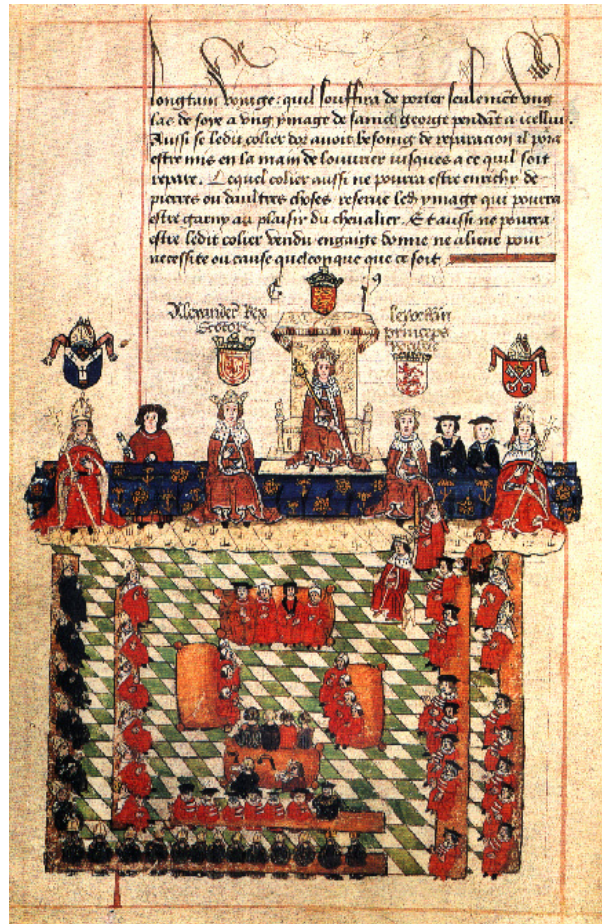 longtain voiage : quil souffira de porter seulemẽt ung
lac de soye a ung ymage de sainct george pendãt a icellui.
Aussi se ledit colier dor avoit besoing de reparacion il põra
estre mis en la main de louvrier iusques a ce quil soit
repare. Lequel colier aussi ne pourra estre enrichy de
pierres ou daultres choses reserve led ymage qui pourra
estre garny au plaisir du chevalier. Et aussi ne pourra
estre ledit colier vendu engaige donne ne aliene pour
necessite ou cause quelconque que ce soit
Alexander Rex
Scotorr
princeps